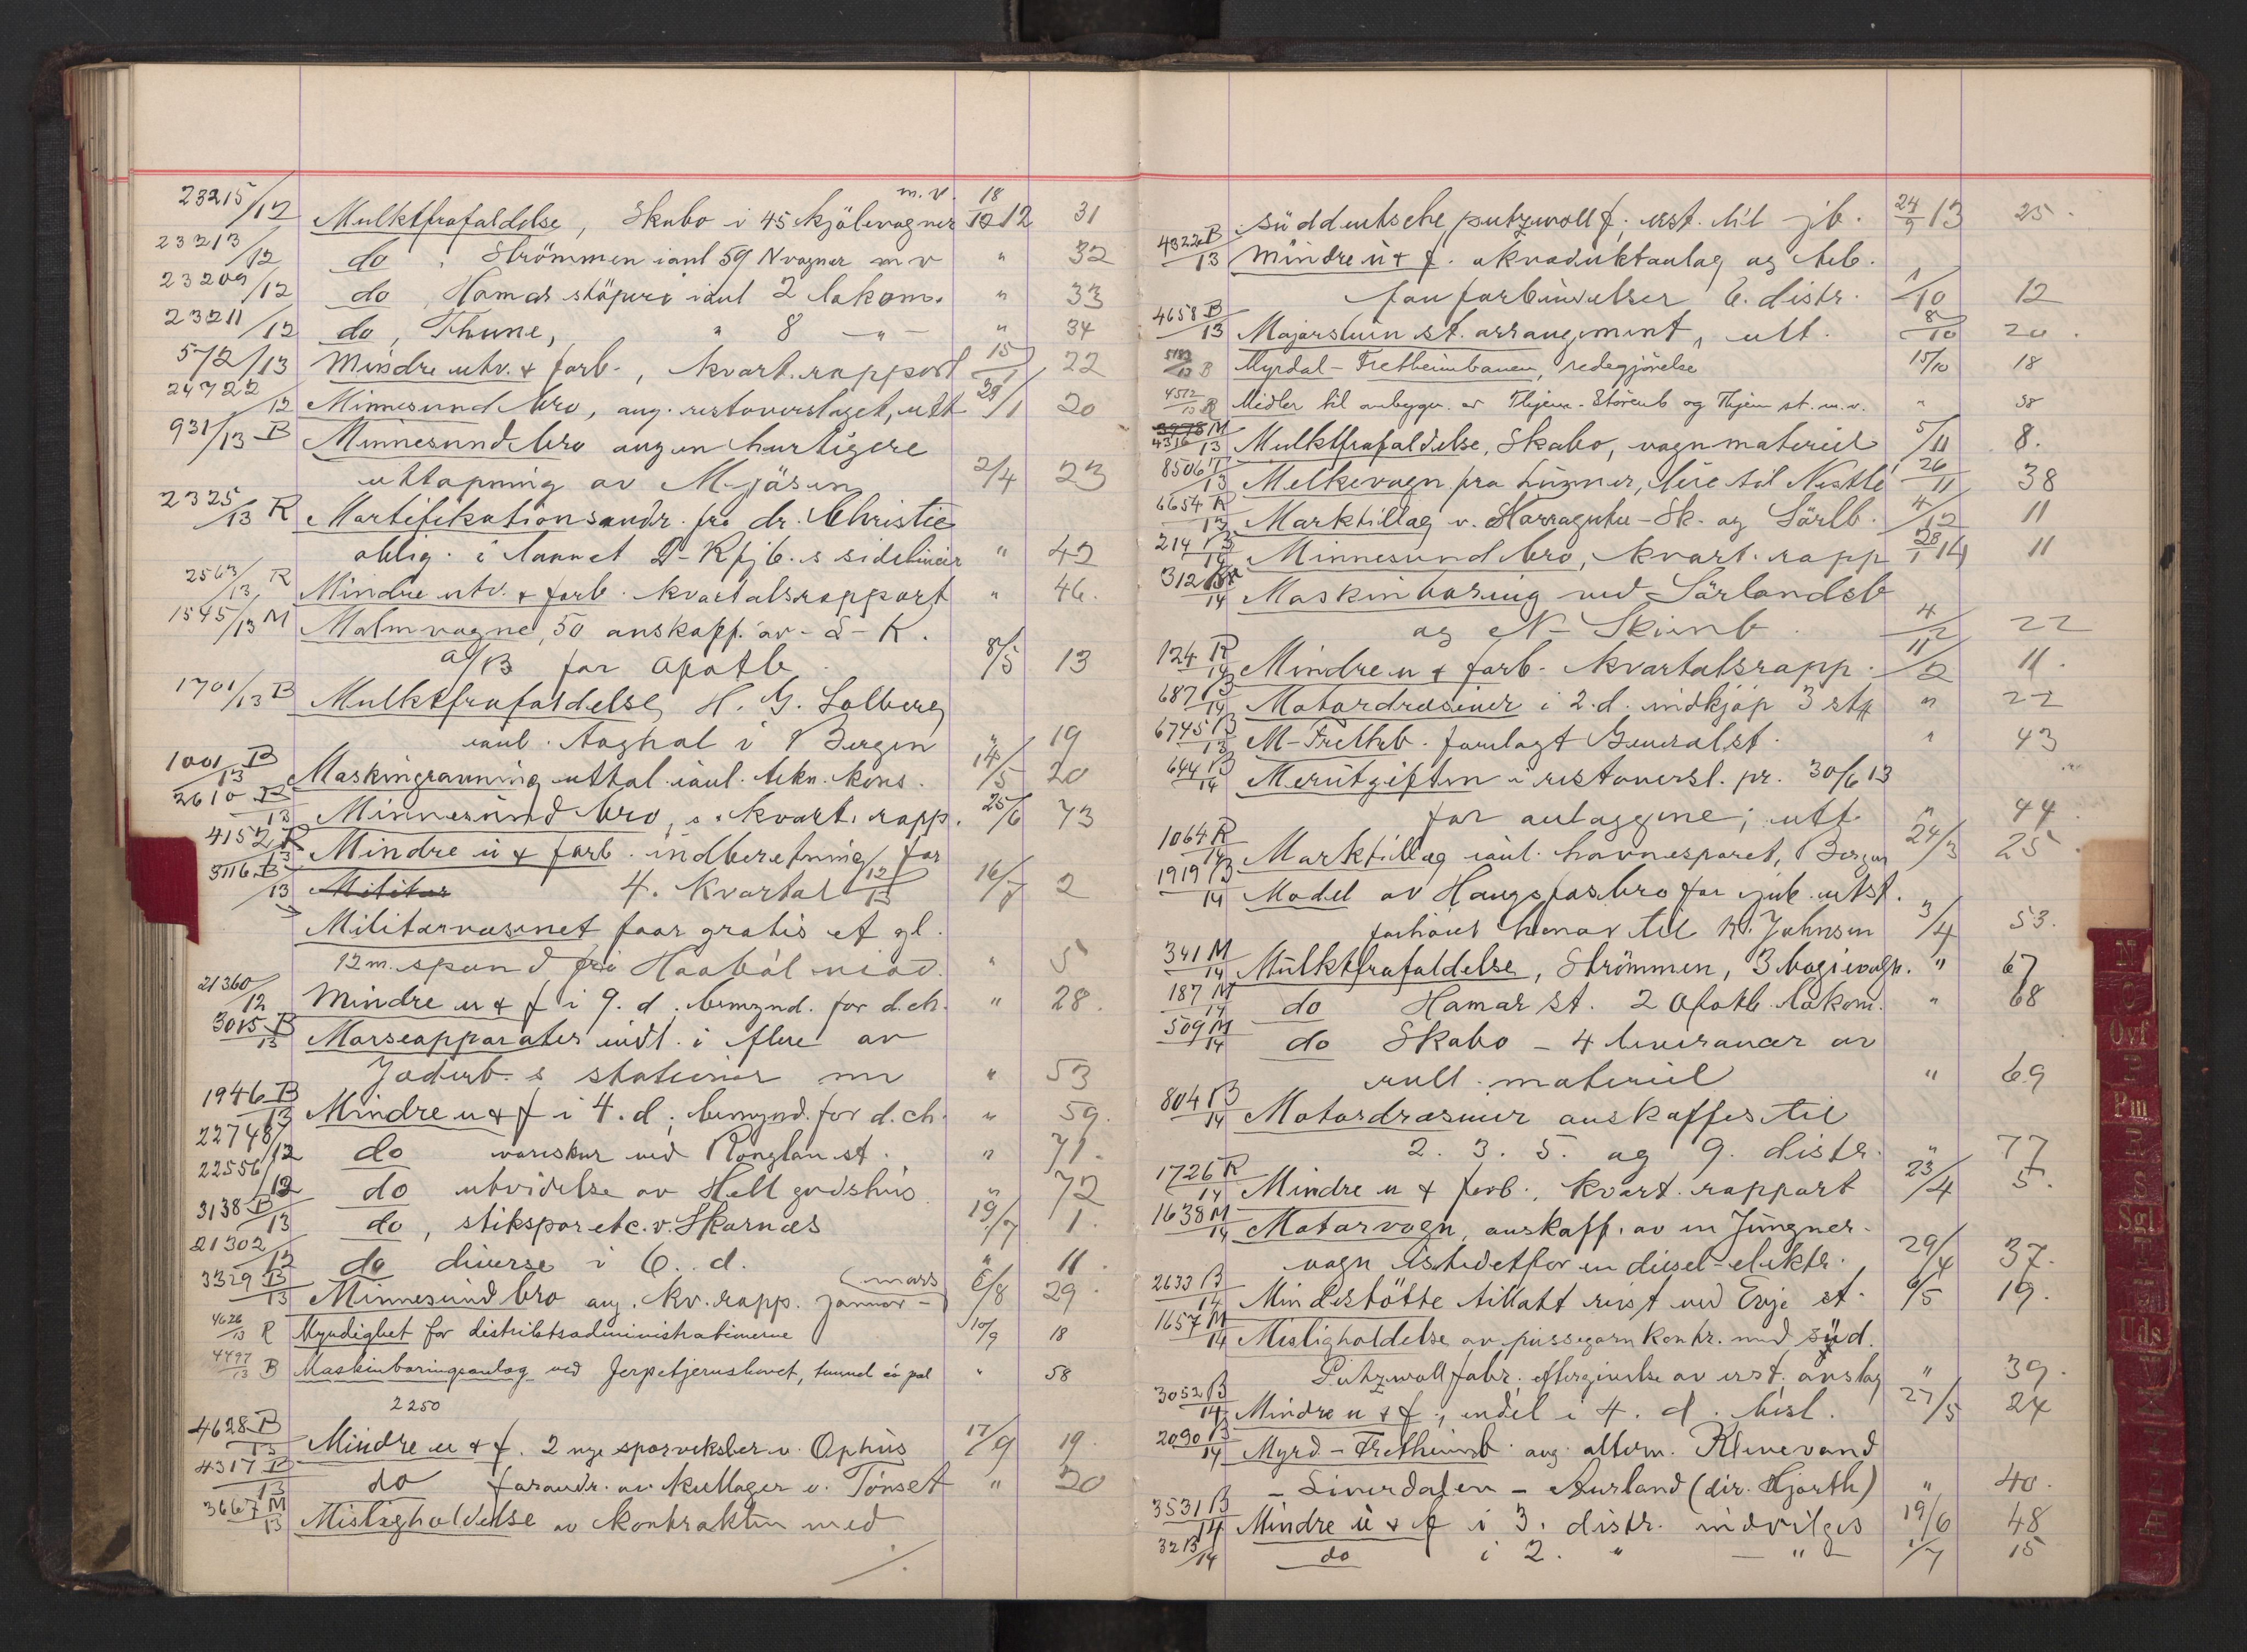 23215/12 Mulktfrafaldelse, Skabo i 45 kjölevogner m.v. 18/12 12 31
23213/12 do , Strömmen ianl 59 N vogner m v " 32
23209/12 do , Hamar stöperi ianl 2 lokom. " 33
23211/12 do , Thune, " 8 — " — " 34
572/13 Mindre utv. & forb., kvart. rapport 15/1 22
24722/12 Minnesund bro, ang. restoverslaget, utt 29/1 20
931/13 B Minnesund bro ang en hurtigere
uttapning av Mjösen 2/4 23
2325/13 R Mortifikationsandr. fra dr. Christie
oblig. i laanet D-Kfjb.s sidelinier " 42
2563/13 R Mindre utv. & forb. kvartalsrapport " 46.
1545/13 M Malmvogne, 50 anskaff. av S-K.
A/B for Ofotb. 8/5 13
1701/13 B Mulktfrafaldelse, H. G. Solberg
ianl. toghal i Bergen " 19
1001 B/13 Maskingranning uttal. ianl. tekn. kons. 14/5 20
2610 B/13 Minnesund bro, s. kvart. rapp. 25/6 73
4152 R/13 Mindre u & forb. indberetning for
3116 B/13 Militær 4. kvartal 12/13 16/7 2
Militærvæsenet faar gratis et gl.
12 m. spand fra Haabøl viad. " 5
21360/12 Mindre u & f i 9. d. bemynd. for d.ch. " 28.
3015 B/13 Morseapparater indl. i flere av
Jæderb.s stationer m " 53
1946 B/13 Mindre u & f i 4. d; bemynd. for d.ch. " 59.
22748/12 do vareskur ved Ronglan st. " 71.
22556/12 do utvidelse av Hell godshus " 72
3138 B/13 do , stikspor etc. v. Skarnes 19/7 1.
21302/12 do diverse i 6. d. " 11.
3329 B/13 Minnesund bro ang. kv. rapp. januar - (mars) 6/8 29.
4626/13 R Myndighet for distriktsadministrationerne 10/9 18
4497/13 B Maskinboringsanlæg ved Jerpetjernshovet, tunnel " 58
2250
4628 B/13 Mindre u & f. 2 nye sporveksler v. Ophus 17/9 19.
4317 B/13 do forandr. av kullager v. Tønset " 20
3667 M/13 Misligholdelse av kontrakten med
./.
süddeutsche putzwollf; erst. til jb. 24/9 13 25.
4322 B/13 Mindre u & f. akvaduktanlæg og tel.
fonforbindelser 6. distr. 1/10 12
4658 B/13 Majorstuen st. arrangement, utt. 8/10 20.
5183/13 B Myrdal-Fretheimbanen, redegjörelse 15/10 18
4572/13 R Midler til ombygn. av Tkjem-Störenb og Tkjem st. m.v. " 38
3978 M
4316/13 Mulktfrafaldelse, Skabo, vognmateriel 5/11 8.
8506 T/13 Melkevogn fra Lüzner, leie til Nestlé 26/11 38
6654 R/13 Marktillæg v. Horragutu-Sk. og Sörlb. 4/12 11
214 B/14 Minnesund bro, kvart. rapp 28/1 14 11
312 B/14 Maskinboring ved Sörlandsb
og N-Skienb. 4/2 22
124 R/14 Mindre u & forb. kvartalsrapp. 11/2 11.
687 B/14 Motordræsiner i 2. d. indkjöp 3 stk " 22
6745 B/13 M-Frethb. forelagt Generalst. " 43
644 B/14 Merutgiften i restoversl. pr. 30/6 13
for anlæggene; utt " 44
1064 R/14 Marktillæg ianl. havnesporet, Bergen 24/3 25.
1919 B/14 Model av Haugsfosbro for jub. utst.
forhöiet honor til N. Johnsen 3/4 53.
341 M/14 Mulktfrafaldelse, Strömmen, 3 bogievogn. " 67
187 M/14 do Hamar st. 2 Ofotb. lokom. " 68
509 M/14 do Skabo - 4 leveranser av
rull. materiel " 69
804 B/14 Motordræsiner anskaffes til
2. 3. 5. og 9. distr. " 77
1726 R/14 Mindre u & forb., kvart. rapport 23/4 5.
1638 M/14 Motorvogn, anskaff. av en Jungner-
vogn istedetfor en diesel-elektr. 29/4 37.
2633 B/14 Mindestötte tillatt reist ved Evje st. 6/5 19.
1657 M/14 Misligholdelse av pussegarn kontr. med süd.
Putzwollfabr; eftergivelse av erst. anslag " 39.
3052 B/14 Mindre u & f., endel i 4. d. 27/5 24
2090 B/14 Myrd-Fretheimb. ang. altern. Klevevand
- Sinerdalen - Aurland (dir. Hjorth) " 40.
3531 B/14 Mindre u & f i 3. distr. indvilges 19/6 48
32 B/14 do i 2. " — " — 1/7 15
N
O
Ovf
P
Pm
R
S
Sgl
T
U
Uds